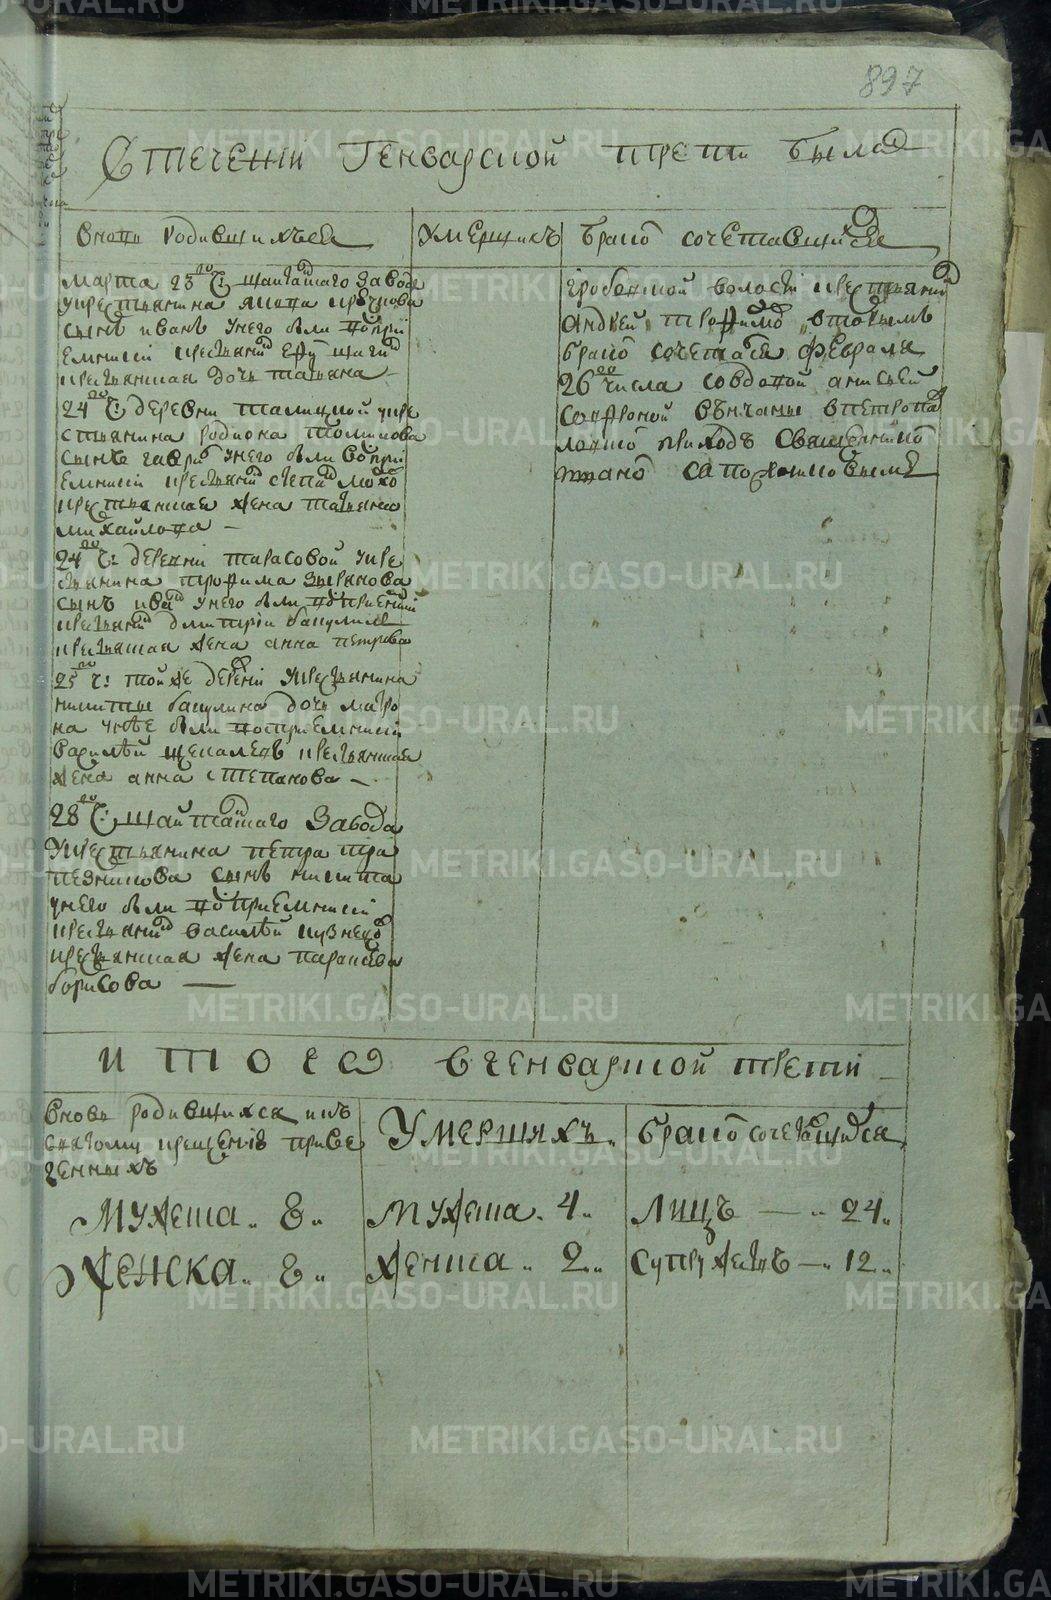 897
в течении генварской трети было
вновь родившихъся
умершихъ
браком сочетавшийся
марта 23 го ч: шайтанского завода
укрестьянина
сынъ иванъ унего были воспри
емники крестьянин
крестьянская дочь татьяна
24 го ч: деревни талицкой укре
стьянина родиона толмачова
сынъ гаврил унего были воспри
емники крестьянин степан
крестьянская жена татьяна
михайлова
24 го ч: деревни тарасовой укре
стьянина трофима зырянова
сынъ иван унего были восприемники
крестьянин дмитрий бакулин
крестьянская жена анна петрова
25 го ч: той же деревни укрестьянина
никиты бакулина дочь матро
на унее были восприемники
василей крестьянская
жена анна степанова
28 го ч: шайтанского завода
укрестьянина петра тра
пезникова сынъ никита
унего были восприемники
крестьянин василей кузнецов
крестьянская жена парасковья
борисова
гробовской волости крестьянин
андрей трофимов вторымъ
браком сочетался февраля
26 го числа совдовой анисьей
сафроновой венчаны впетропав
ловском приходе священником
сапожниковымъ
итого вгенварской трети
вновь родившихся икъ
святому крещению приве
денныхъ
мужеска 8
женска 8
умершихъ
мужеска 4
женска 2
браком сочетавшийся
лицъ 24
супружествъ 12
METRIKI.GASO-URAL.RU